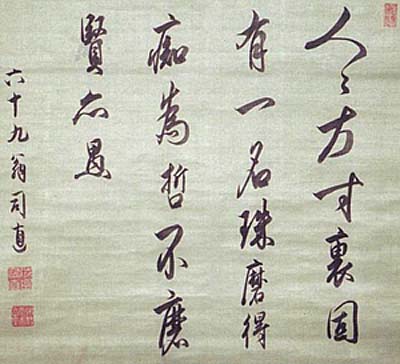 人〻方寸裏固
有一名珠磨得
痴為哲不磨
賢亦愚
六十九翁司直